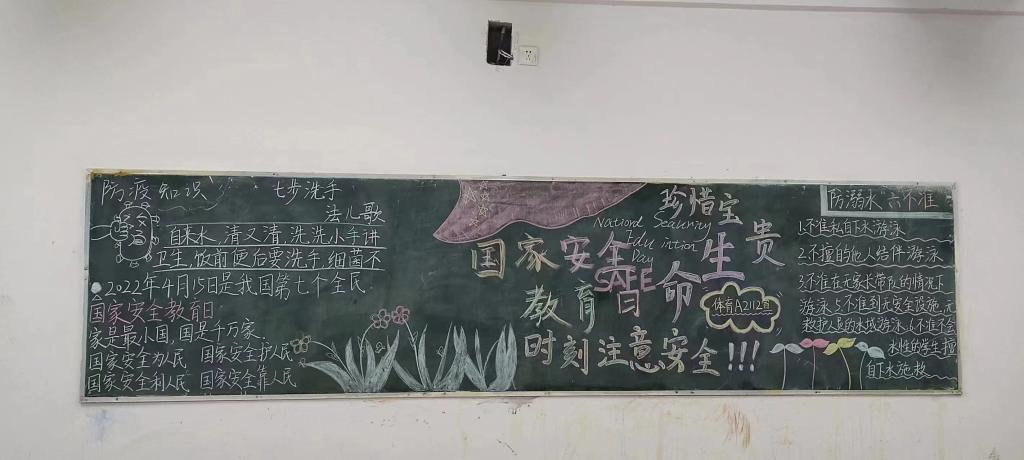 防疫知识 七步洗手
法儿歌
自来水,清又清,洗洗小手讲
卫生,饭前便后要洗手,细菌不
2022年4月15日是我国第七个全民
国家安全教育日
家是最小国,国是千万家.
国家安全为人民 国家安全护人民
国家安全利人民 国家安全靠人民
珍惜宝
贵
生
命
National Security
Education
Day
国家安全
SAFE
教育日
体育A2112班
时刻注意安全!!!
防溺水 六不准
1.不准私自下水游泳
2.不擅自与他人结伴游泳
3.不准在无家长带队的情况下
游泳.5不准到无安全设施,无
救护人员的水域游泳.6不准不会
水性的学生擅
自下水施救